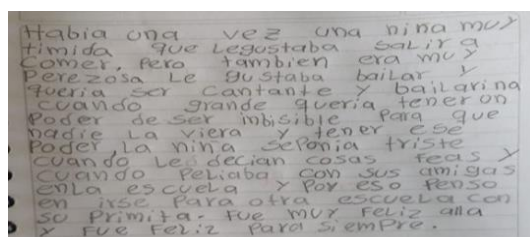 Habia una vez una nina muy
timida que Legustaba salir a
comer. Pero tambien era muy
Perezosa Le gustaba bailar y
queria ser cantante y bailarina
cuando grande queria tener un
Poder de ser inbisible Para que
nadie La viera y tener ese
Poder, La nina sePonia triste
cuando Le decian cosas feas y
cuando PeLiaba con sus amigas
enLa escuela y Por eso Penso
en irse Para otra escueLa con
su Primita. Fue muy Feliz alla
y Fue Feliz Para siempre.